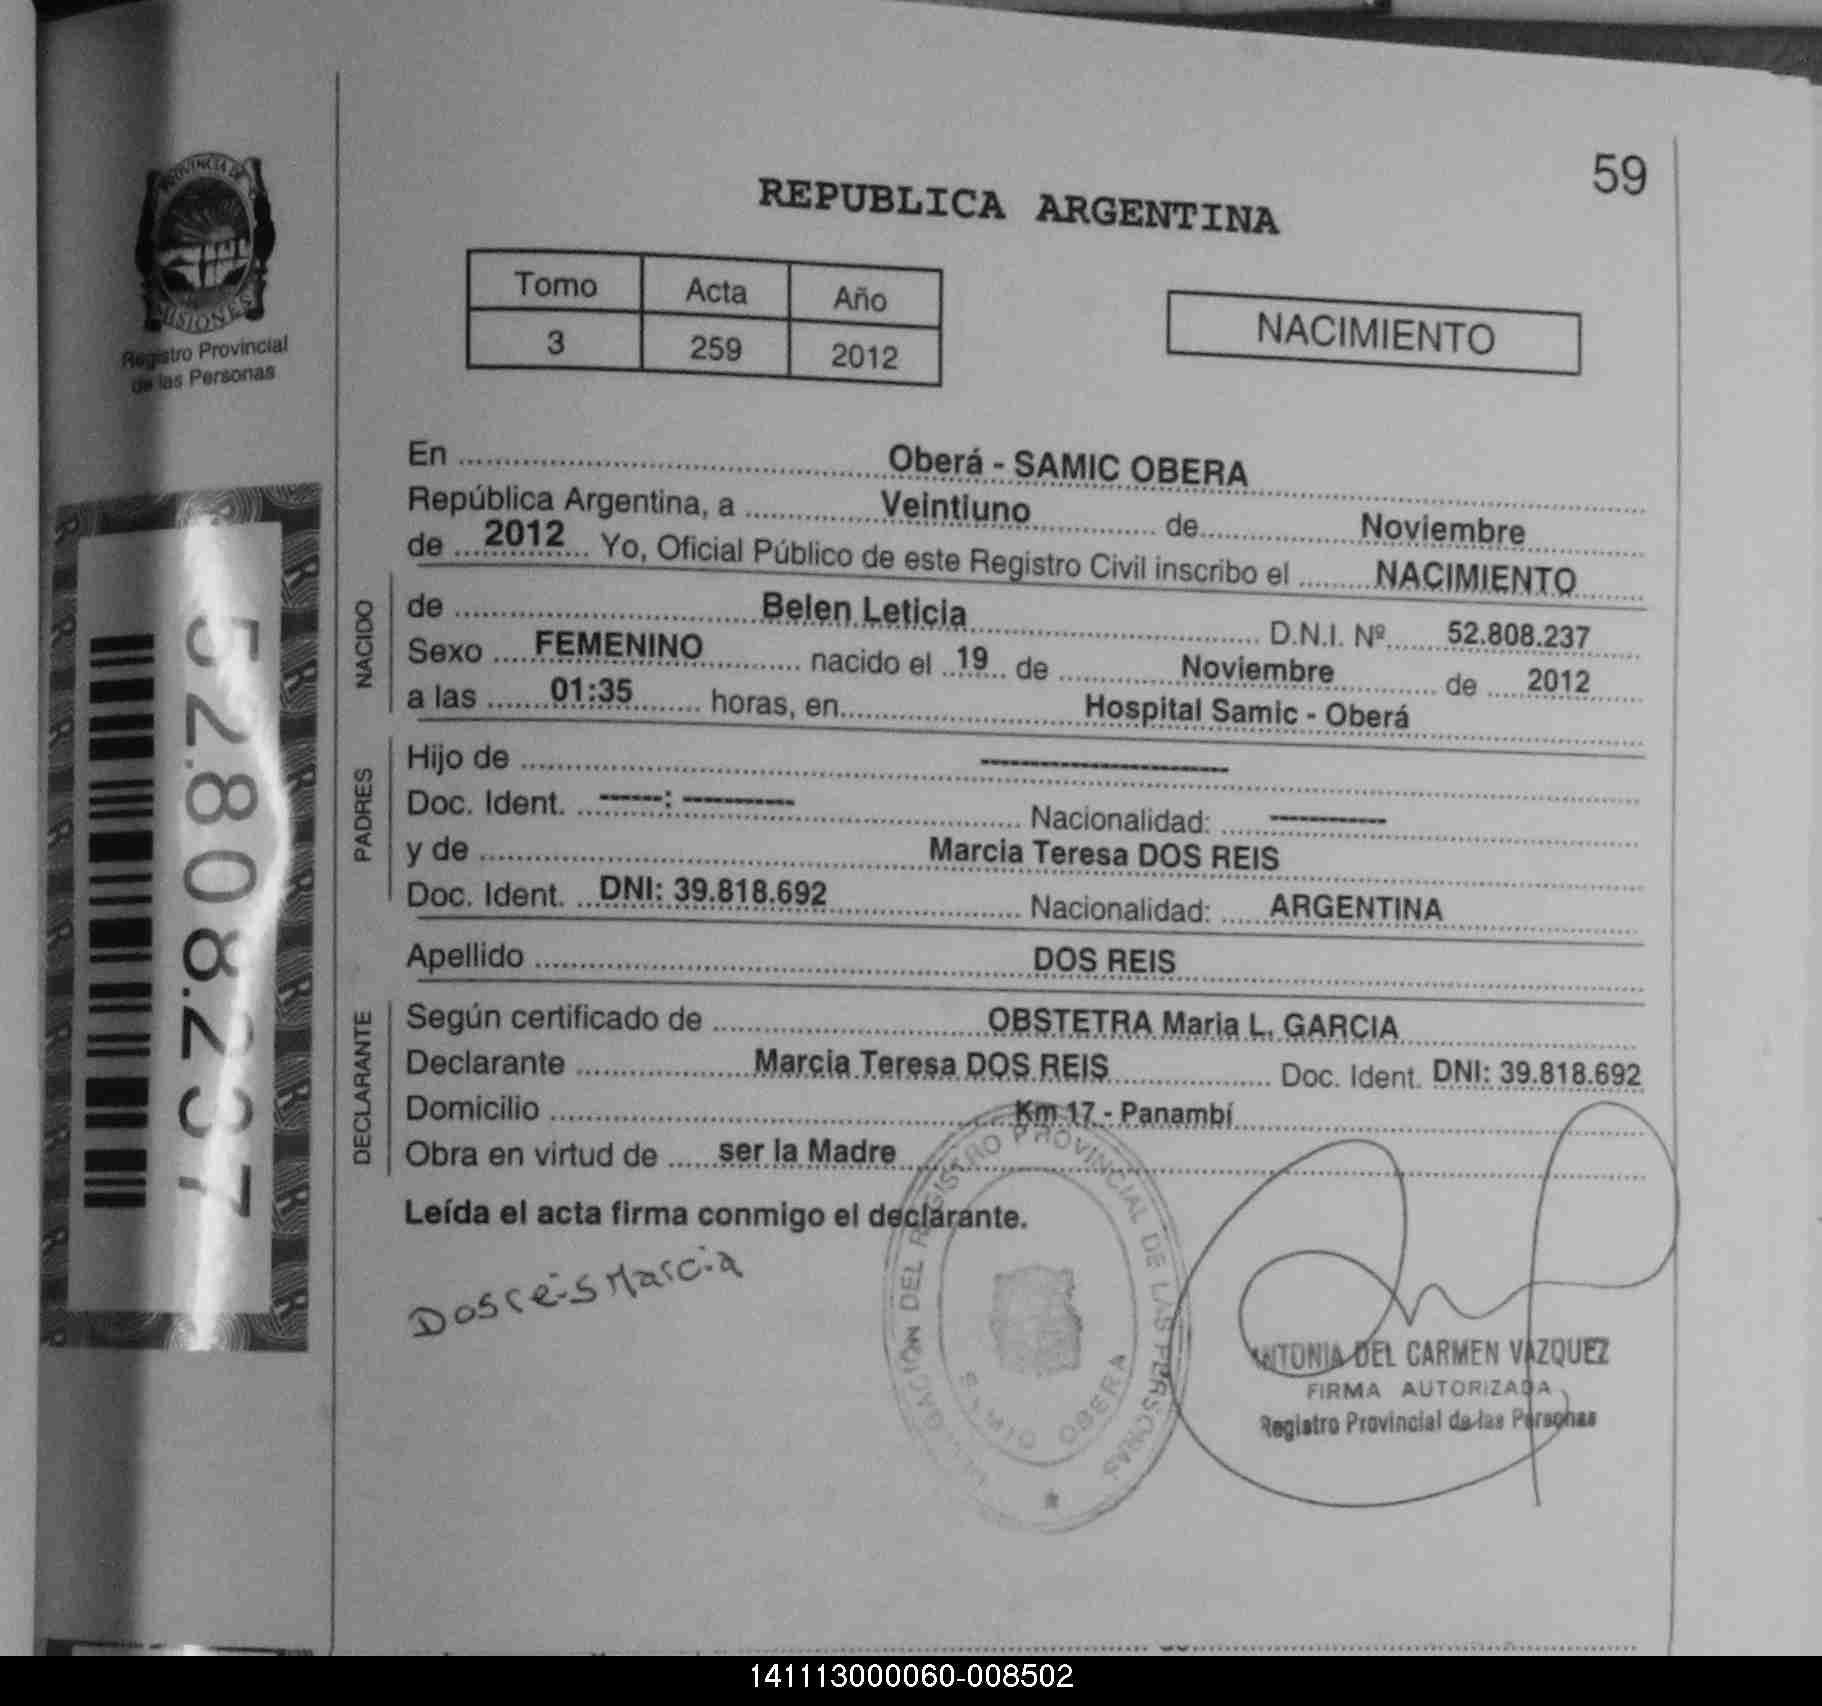 59
REPUBLICA ARGENTINA
Tomo Acta Año
3 259 2012
NACIMIENTO
PROVINCIA DE
MISIONES
Registro Provincial
de las Personas
52.808.237
En Oberá - SAMIC OBERA
República Argentina, a Veintiuno de Noviembre
de 2012 Yo, Oficial Público de este Registro Civil inscribo el NACIMIENTO
NACIDO
de Belen Leticia D.N.I. Nº 52.808.237
Sexo FEMENINO nacido el 19 de Noviembre de 2012
a las 01:35 horas, en Hospital Samic - Oberá
PADRES
Hijo de --------------------
Doc. Ident. ------: ---------- Nacionalidad: -----------
y de Marcia Teresa DOS REIS
Doc. Ident. DNI: 39.818.692 Nacionalidad: ARGENTINA
Apellido DOS REIS
DECLARANTE
Según certificado de OBSTETRA Maria L. GARCIA
Declarante Marcia Teresa DOS REIS Doc. Ident. DNI: 39.818.692
Domicilio Km 17 - Panambí
Obra en virtud de ser la Madre
Leída el acta firma conmigo el declarante.
Dos reis Marcia
DEL REGISTRO PROVINCIAL DE LAS PERSONAS
OBERA
ANTONIA DEL CARMEN VAZQUEZ
FIRMA AUTORIZADA
Registro Provincial de las Personas
141113000060-008502